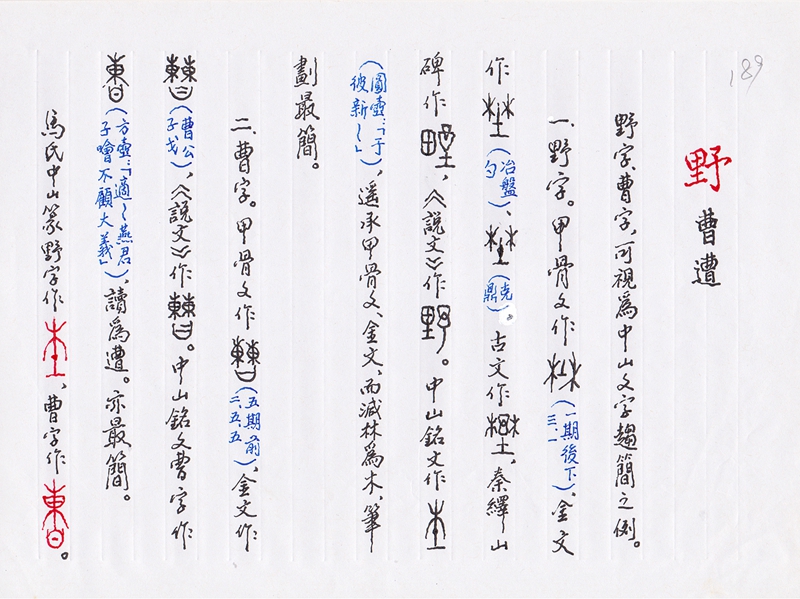 189
野 曹遭
野字、曹字,可視爲中山文字趨簡之例。
一、野字。甲骨文作(一期後下三、一)、金文
作(冶盤勺)、(克鼎)。古文作,秦繹山
碑作,《說文》作。中山銘文作
(圓壺:「于彼新~」),遥承甲骨文、金文,而減林爲木,筆
劃最簡。
二、曹字。甲骨文作(五期前二、五、五)、金文作
(曹公子戈),《說文》作。中山銘文曹字作
(方壺:「適~燕君子噲不顧大義」),讀爲遭。亦最簡。
馬氏中山篆野字作、曹字作。